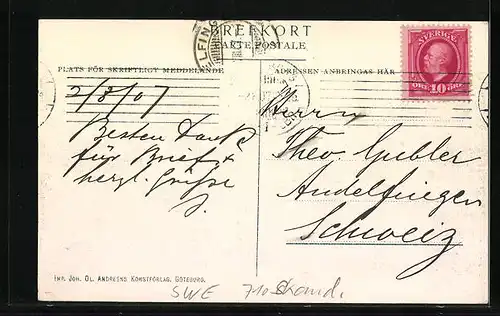 BREFKORT
CARTE POSTALE
PLATS FÖR SKRIFTLIGT MEDDELANDE
ADRESSEN ANBRINGAS HÄR
SVERIGE
10
ÖRE 10 ÖRE
2/3/07
Besten Dank
für Brief &
herzl. Grüsse
J.
Herrn
Theo. Gubler
Andelfingen
Schweiz
IMP. JOH. OL. ANDREENS KONSTFÖRLAG, GÖTEBORG.
SWE